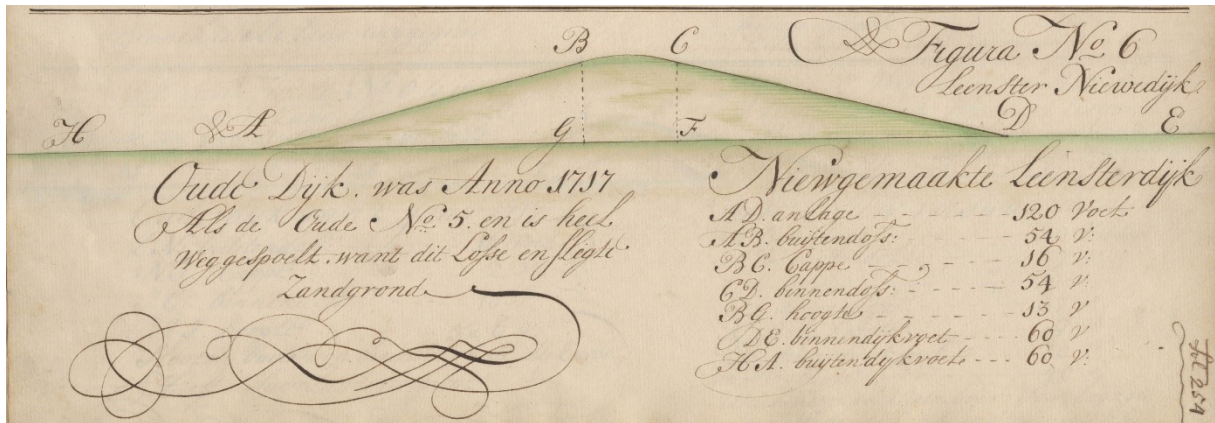 Figura No. 6
Leenster Niewedijk
B C
H A G F D E
Oude Dijk. was Anno 1717
Als de Oude No. 5. en is heel
Weggespoelt. want dit Losse en slegte
Zandgrond
Niewgemaakte Leensterdijk
A D. anlage - - - - - - 120 Voet
A B. buijtendoss: - - - - - 54 v:
B C. Cappe - - - - - 16 v:
C D. binnendoss: - - - - - 54 v:
B G. hoogte - - - - - 13 v
D E. binnendijkvoet - - - - 60 v
H A. buijtendijkvoet - - - 60 v:
fol 254